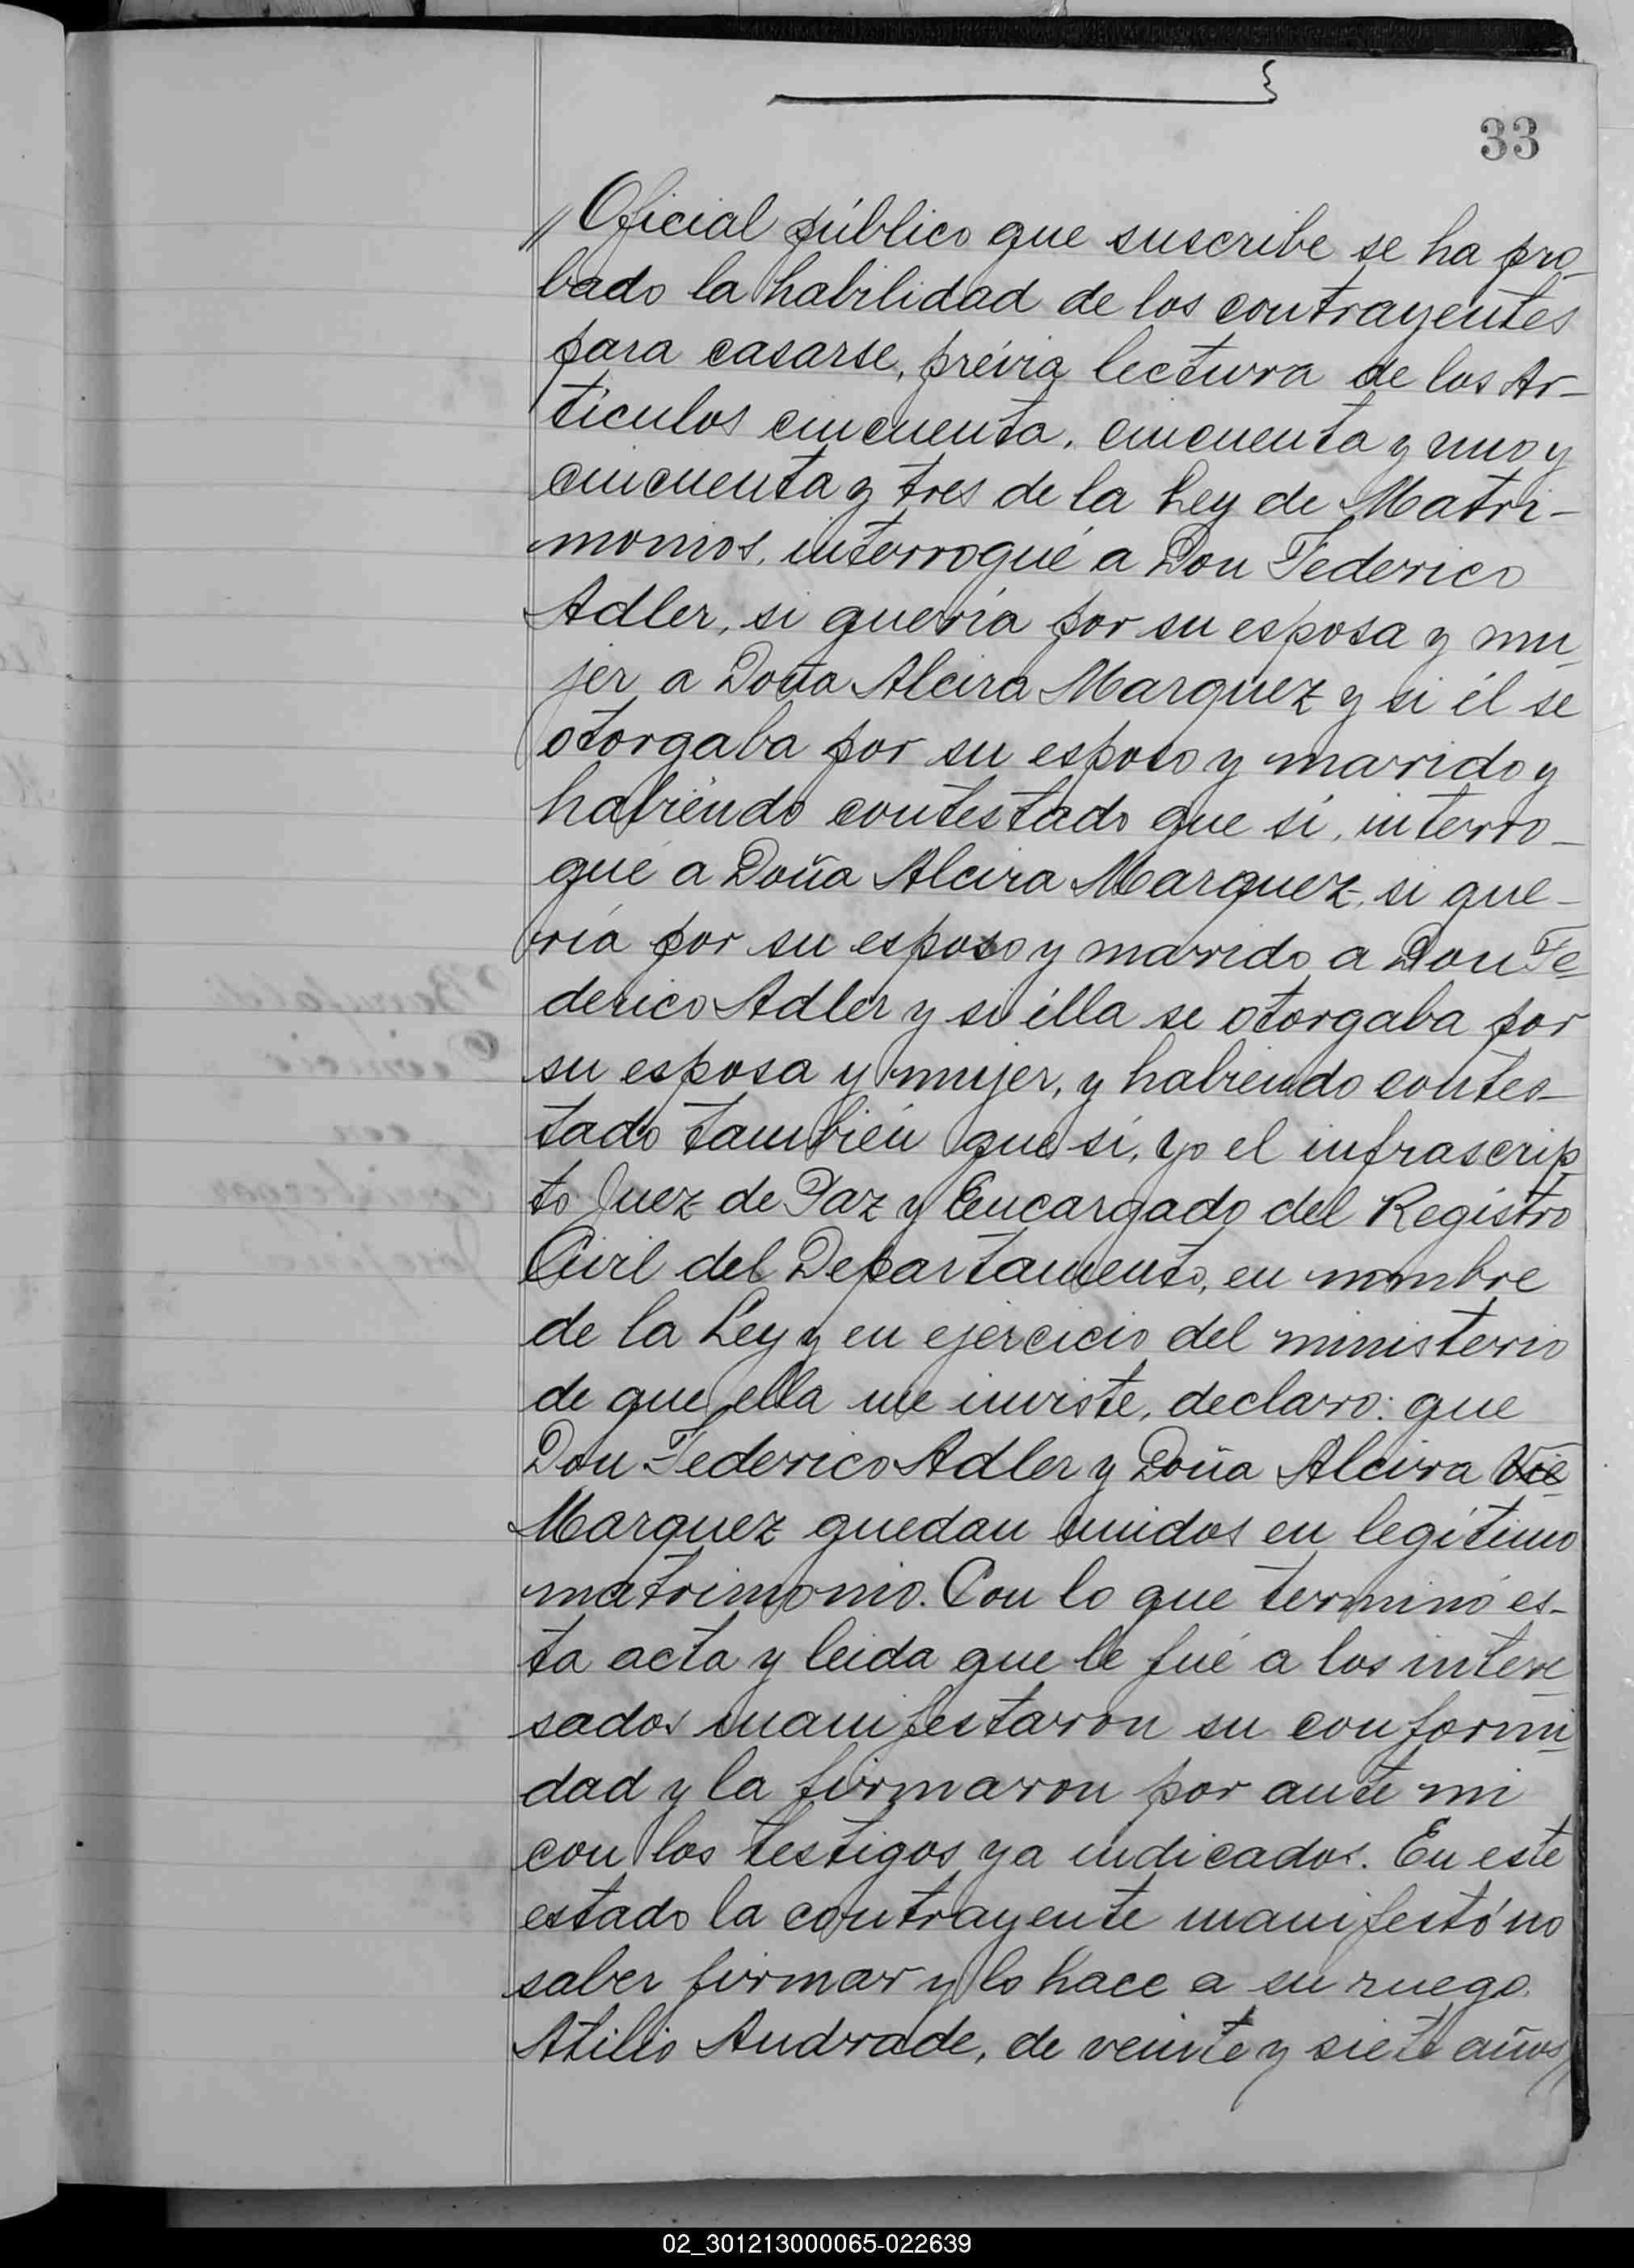 33
„Oficial público que suscribe se ha pro_
bado la habilidad de los contrayentes
para casarse, prévia lectura de los Ar-
tículos cincuenta, cincuenta y uno y
cincuenta y tres de la Ley de Matri-
monios, interrogué a Don Federico
Adler, si quería por su esposa y mu_
jer a Doña Alcira Marquez y si él se
otorgaba por su esposo y marido y
habiéndo contestado que sí, interro_
gué a Doña Alcira Marquez, si que_
ría por su esposo y marido a Don Fe_
derico Adler y si élla se otorgaba por
su esposa y mujer, y habiendo contes_
tado también que sí, yo el infrascrip_
to Juez de Paz y Encargado del Registro
Civil del Departamento, en nombre
de la Ley y en ejercicio del ministerio
de que ella me inviste, declaro: que
Don Federico Adler y Doña Alcira
Marquez quedan unidos en legítimo
matrimonio. Con lo que terminó es-
ta acta y leida que le fué a los intere_
sados manifestaron su conformi_
dad y la firmaron por ante mi
con los testigos ya indicados. En este
estado la contrayente manifestó no
saber firmar y lo hace a su ruego
Atilio Andrade, de veinte y siete años//
02_301213000065-022639